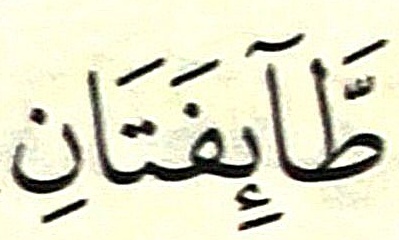 طَّآئِفَتَانِ